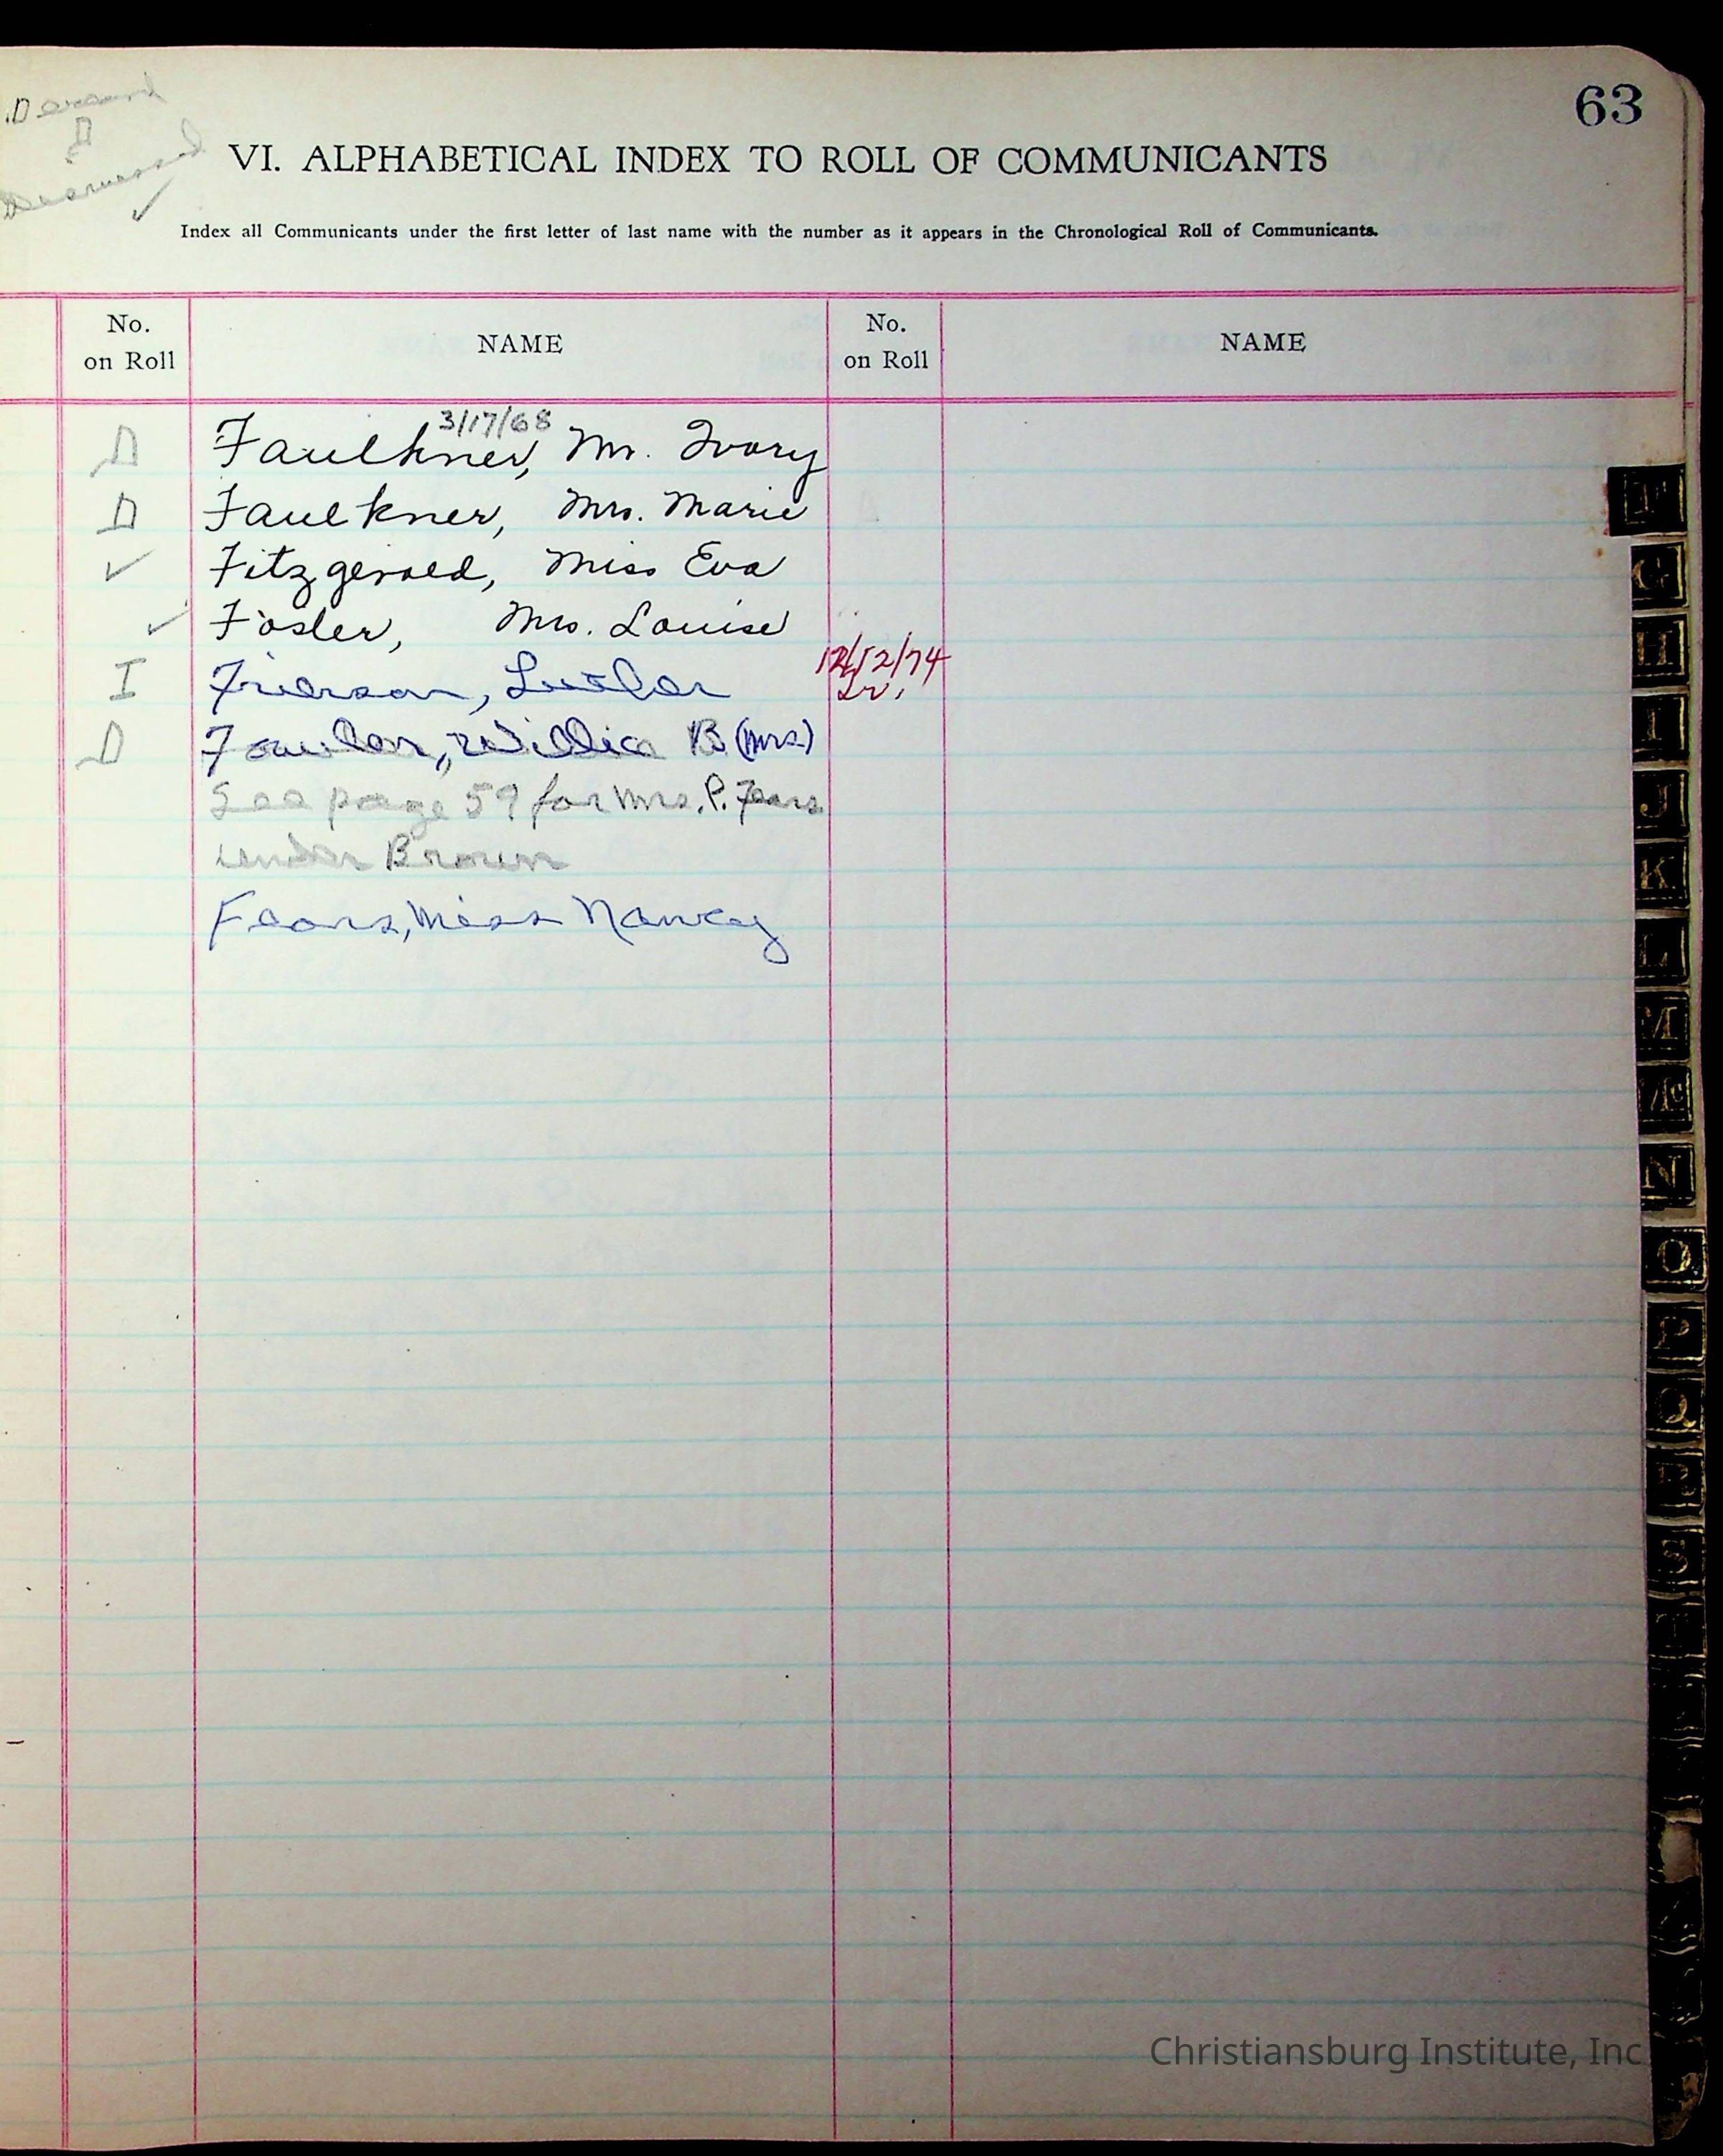 63
Deceased
D
Deceased
✓
VI. ALPHABETICAL INDEX TO ROLL OF COMMUNICANTS
Index all Communicants under the first letter of last name with the number as it appears in the Chronological Roll of Communicants.
No. on Roll NAME No. on Roll NAME
3/17/68
D Faulkner, Mr. Ivory
D Faulkner, Mrs. Marie
✓ Fitzgerald, Miss Eva
✓ Foster, Mrs. Louise
I Frierson, Luther 12/12/74
D Fowler, Willie B. (Mrs)
See page 59 for Mrs. P. Fears
under Brown
Fears, Miss Nancy
F
G
H
I
J
K
L
M
Mc
N
O
P
Q
R
S
Christiansburg Institute, Inc